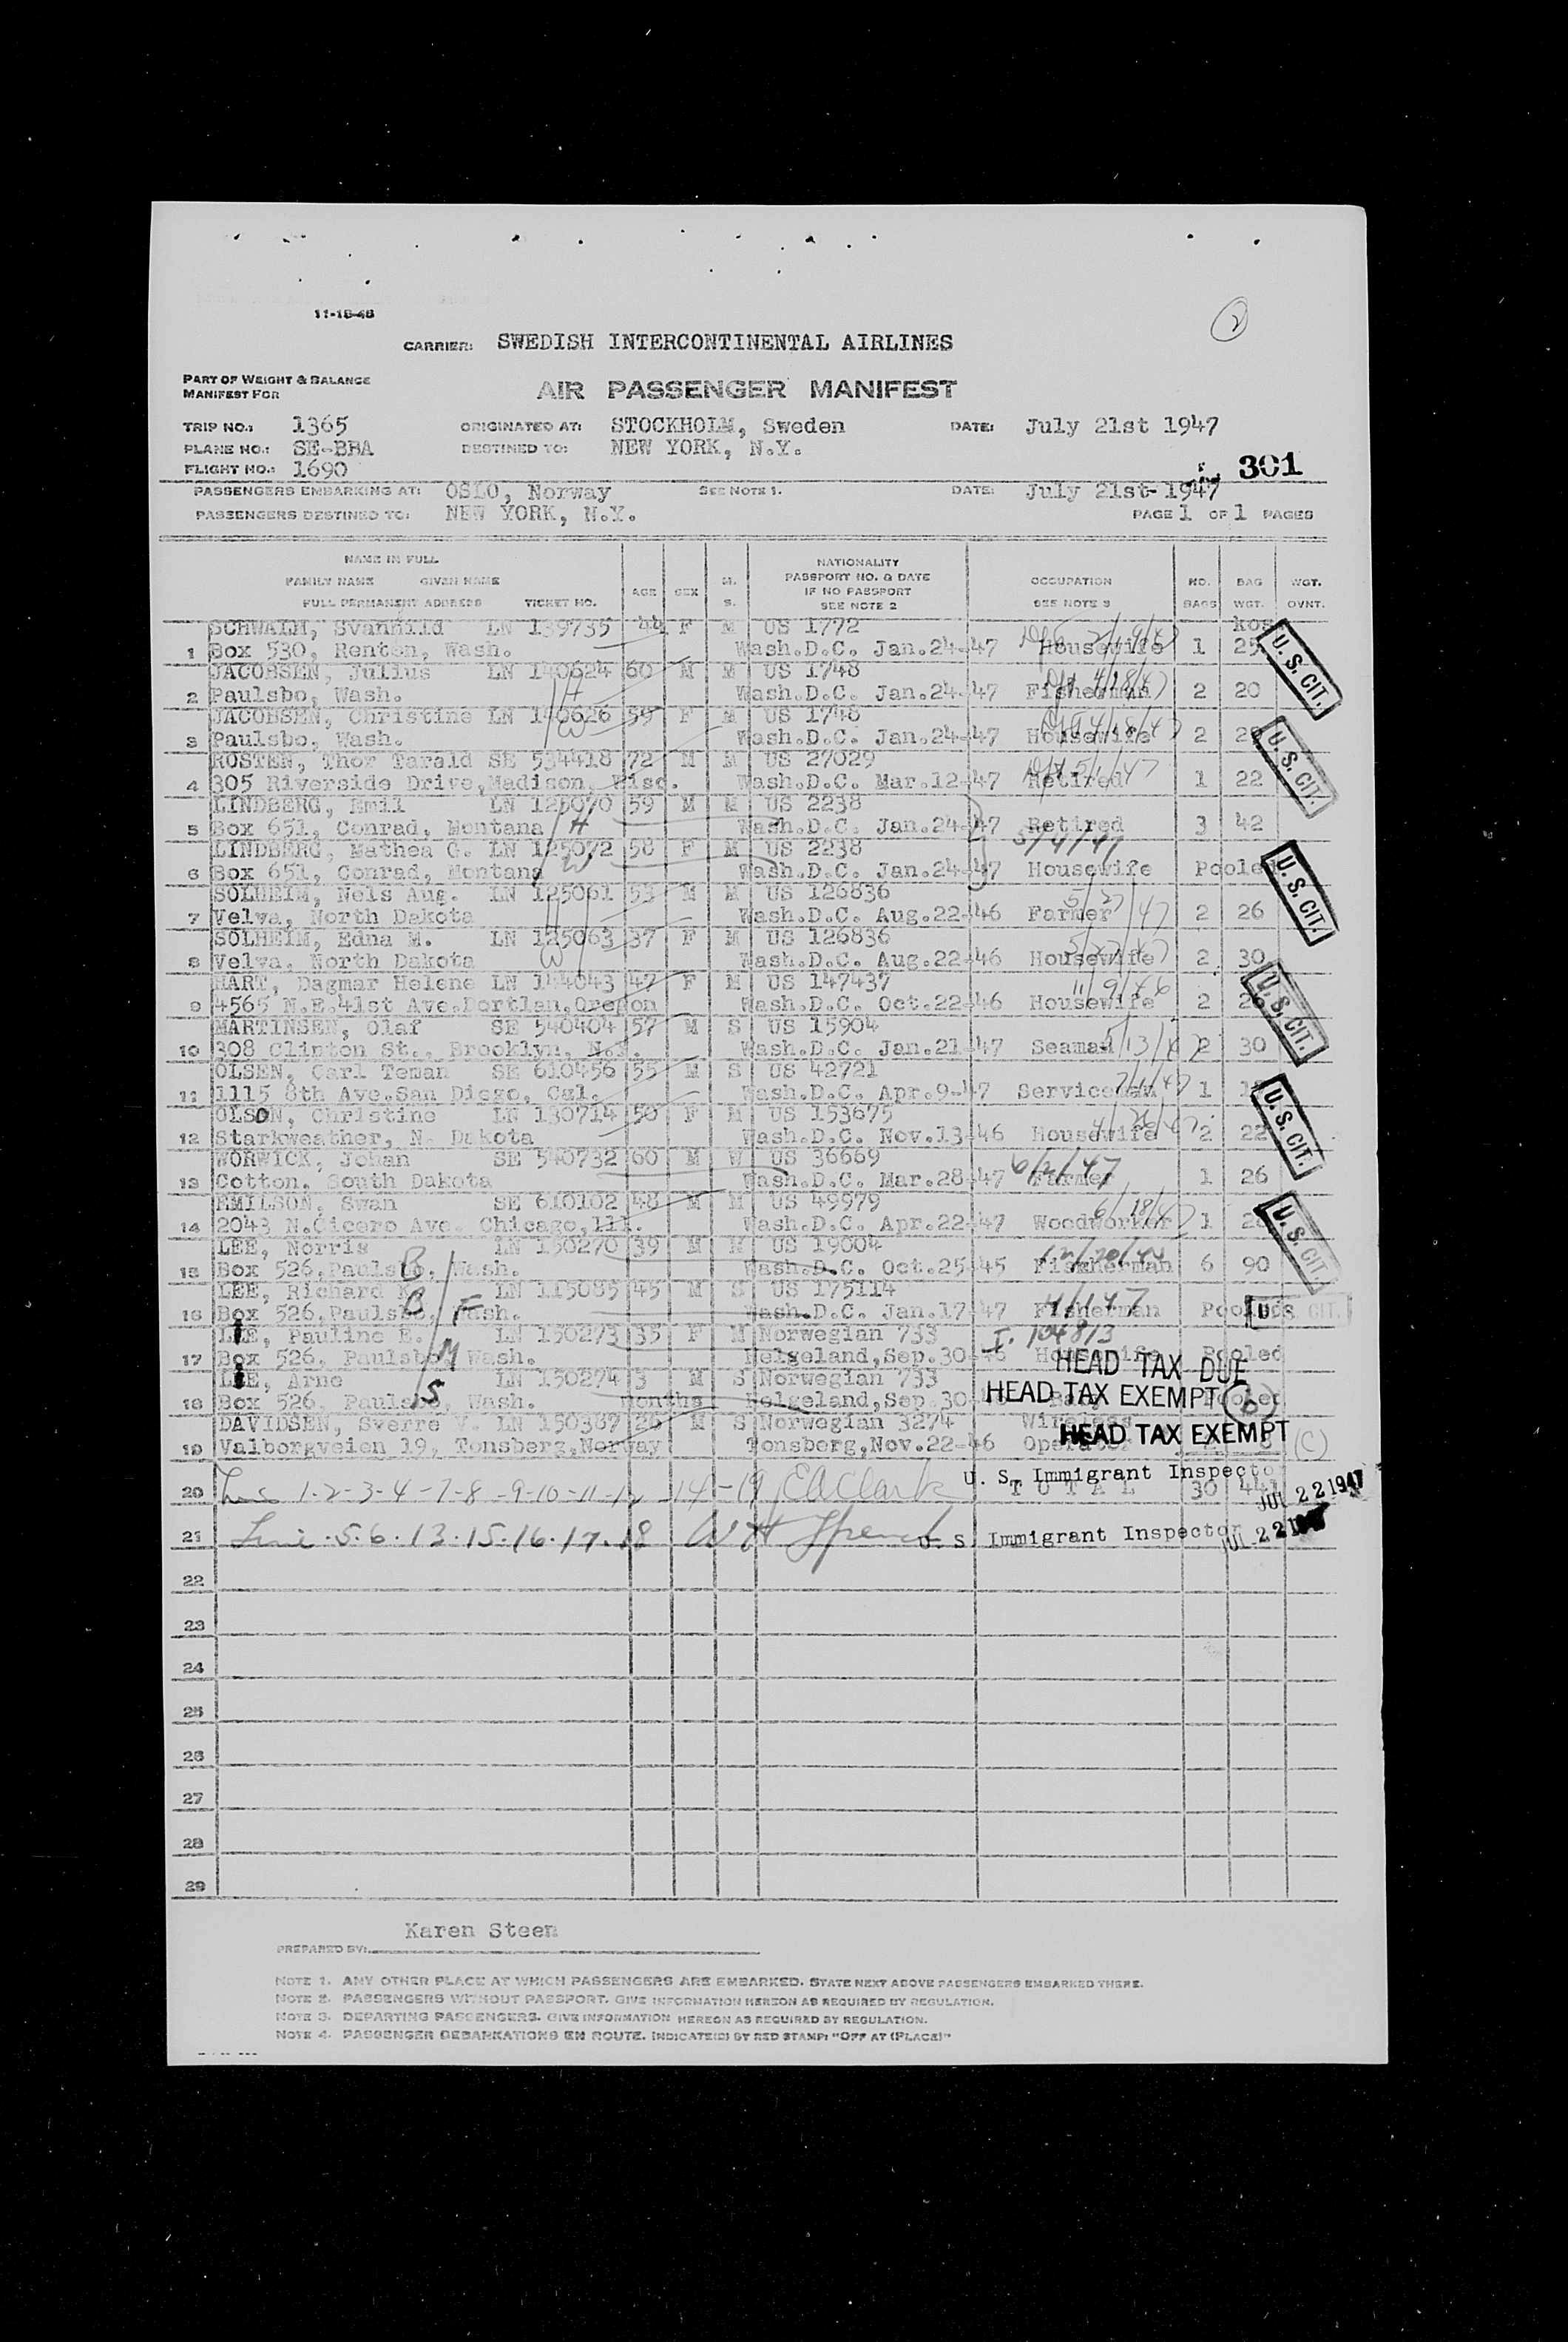 11-18-46
2
CARRIER: SWEDISH INTERCONTINENTAL AIRLINES
PART OF WEIGHT & BALANCE
MANIFEST FOR
AIR PASSENGER MANIFEST
TRIP NO.: 1365 ORIGINATED AT: STOCKHOLM, Sweden DATE: July 21st 1947
PLANE NO.: SE-BBA DESTINED TO: NEW YORK, N.Y.
FLIGHT NO.: 1690
301
PASSENGERS EMBARKING AT: OSLO, Norway SEE NOTE 1. DATE: July 21st-1947
PASSENGERS DESTINED TO: NEW YORK, N.Y. PAGE 1 OF 1 PAGES
NAME IN FULL
FAMILY NAME GIVEN NAME
FULL PERMANENT ADDRESS TICKET NO.
AGE SEX M. S.
NATIONALITY
PASSPORT NO. & DATE
IF NO PASSPORT
SEE NOTE 2
OCCUPATION
SEE NOTE 3
NO. BAGS
BAG WGT.
WGT. OVNT.
kos
SCHWALM, Svanhild LN 139735 44 F M US 1772
1 Box 530, Renton, Wash. Wash.D.C. Jan.24-47 Housewife 1 25
JACOBSEN, Julius LN 140624 60 M M US 1748
2 Paulsbo, Wash. H Wash.D.C. Jan.24-47 Fisherman 4/18/47 2 20
JACOBSEN, Christine LN 140626 59 F M US 1748
3 Paulsbo, Wash. W Wash.D.C. Jan.24-47 Housewife 4/18/47 2
ROSTEN, Thor Tarald SE 534418 72 M M US 27029
4 305 Riverside Drive,Madison, Wisc. Wash.D.C. Mar.12-47 Retired 5/1/47 1 22
LINDBERG, Emil LN 125070 59 M M US 2238
5 Box 651, Conrad, Montana H Wash.D.C. Jan.24-47 Retired 3 42
LINDBERG, Mathea G. LN 125072 58 F M US 2238 5/4/47
6 Box 651, Conrad, Montana W Wash.D.C. Jan.24-47 Housewife Pooled
SOLHEIM, Nels Aug. LN 125061 53 M M US 126836
7 Velva, North Dakota H Wash.D.C. Aug.22-46 Farmer 5/27/47 2 26
SOLHEIM, Edna M. LN 125063 37 F M US 126836
8 Velva, North Dakota W Wash.D.C. Aug.22-46 Housewife 5/27/47 2 30
HART, Dagmar Helene LN 144043 47 F M US 147437
9 4565 N.E.41st Ave.Portlan,Oregon Wash.D.C. Oct.22-46 Housewife 11/9/46 2
MARTINSEN, Olaf SE 540404 57 M S US 15904
10 308 Clinton St., Brooklyn, N.Y. Wash.D.C. Jan.21-47 Seaman 2 30
OLSEN, Carl Teman SE 610456 55 M S US 42721
11 1115 8th Ave.San Diego, Cal. Wash.D.C. Apr.9-47 Serviceman 1
OLSON, Christine LN 130714 50 F M US 153675
12 Starkweather, N. Dakota Wash.D.C. Nov.13-46 Housewife 4/26/47 2 22
WORWICK, Johan SE 540732 60 M W US 36669
13 Cotton. South Dakota Wash.D.C. Mar.28-47 Farmer 6/2/47 1 26
EMILSON, Swan SE 610102 48 M M US 49979
14 2043 N.Cicero Ave. Chicago,Ill. Wash.D.C. Apr.22-47 Woodworker 6/18/47 1
LEE, Norris LN 150270 39 M M US 19004
15 Box 526,Paulsbo, Wash. B Wash.D.C. Oct.25-45 Fisherman 6 90
LEE, Richard K. LN 115085 45 M S US 175114
16 Box 526,Paulsbo, Wash. B F Wash.D.C. Jan.17-47 Fisherman Pooled
LEE, Pauline E. LN 150273 35 F M Norwegian 733 I. 104813
17 Box 526, Paulsbo, Wash. M Helgeland,Sep.30-46 Housewife Pooled
LEE, Arne LN 150274 3 M S Norwegian 733
18 Box 526, Paulsbo, Wash. S months Helgeland,Sep.30 Pooled
DAVIDSEN, Sverre V. LN 150387 26 M S Norwegian 3274 Wireless
19 Valborgveien 19, Tonsberg,Norway Tonsberg,Nov.22-46 Operator (C)
U. S. CIT.
U. S. CIT.
U. S. CIT.
U. S. CIT.
U. S. CIT.
U. S. CIT
U. S. CIT.
HEAD TAX DUE
HEAD TAX EXEMPT (b)
HEAD TAX EXEMPT
20 Line 1-2-3-4-7-8-9-10-11-12 14-19 EAClark U. S. Immigrant Inspector
TOTAL 30 441 JUL 22 1947
21 Line 5.6.13.15.16.17.18 U. S. Immigrant Inspector JUL 22 1947
22
23
24
25
26
27
28
29
Karen Steen
PREPARED BY:
NOTE 1. ANY OTHER PLACE AT WHICH PASSENGERS ARE EMBARKED. STATE NEXT ABOVE PASSENGERS EMBARKED THERE.
NOTE 2. PASSENGERS WITHOUT PASSPORT. GIVE INFORMATION HEREON AS REQUIRED BY REGULATION.
NOTE 3. DEPARTING PASSENGERS. GIVE INFORMATION HEREON AS REQUIRED BY REGULATION.
NOTE 4. PASSENGER DEBARKATIONS EN ROUTE. INDICATE(D) BY RED STAMP: "OFF AT (PLACE)"